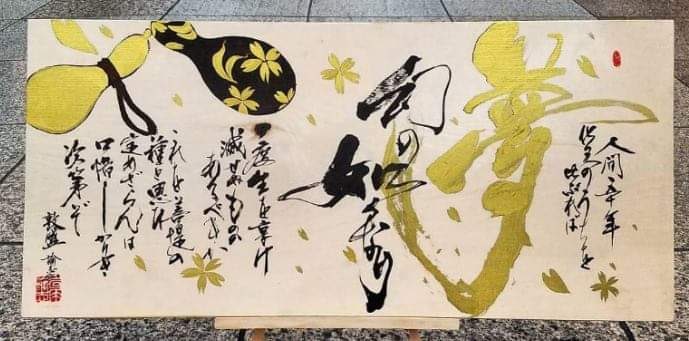 人間五十年
化天のうちを
比ぶれば
夢
幻の如くなり
一度生を享け
滅せぬものの
あるべきか
これを菩提の
種と思ひ
定めざらんは
口惜しかりき
次第ぞ
敦盛